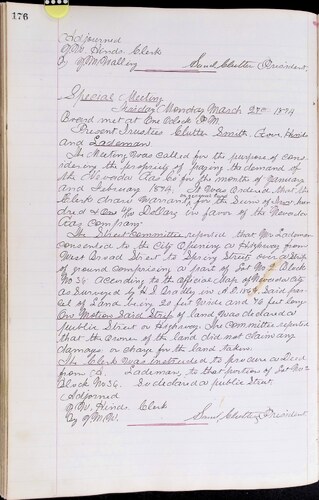 176
Adjourned
Hinds Clerk
By
Saml Clutter President
Special Meeting
Monday March 1874
Board met at One Oclock P.M.
Present Trustees Clutter Smith Hinds
and Lademan
The Meeting was called for the purpose of cons-
idering the propriety of paying the demand of
the Nevada Gas Co for the months of January
and February 1874. It was ordered that the
Clerk draw warrant for the Sum of Two hun-
dred & Dollars in favor of the Nevada
Gas Company
The Street Committee reported that Mr Lademan
consented to the City Opening a Highway from
West Broad Street to Spring Street over a Strip
of ground comprising a part of Lot No 2 Block
No 36 According to the Official Map of Nevada City
as Surveyed by H S Bradley in A.D. 1869. Said par-
cel of Land being 20 feet wide and feet long
One Motion Said Strip of land was declared a
public Street or Highway. The Committee reported
that the owner of the land did not claim any
damage or charge for the land taken
The Clerk was instructed to procure a Deed
from Lademan, to that portion of Lot No 2
Block No 36. So declared a public Street.
Adjourned
Hinds Clerk
By
Saml Clutter President